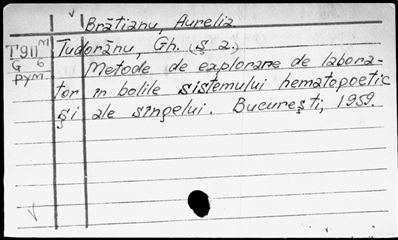 Brătianu, Aurelia
T911M Tudorănu, Gh. (ş a.)
G 6 Metode de explorare de labora-
рум. tor în bolile sistemului hematopoetic
şi ale sîngelui. Bucureşti, 1959.